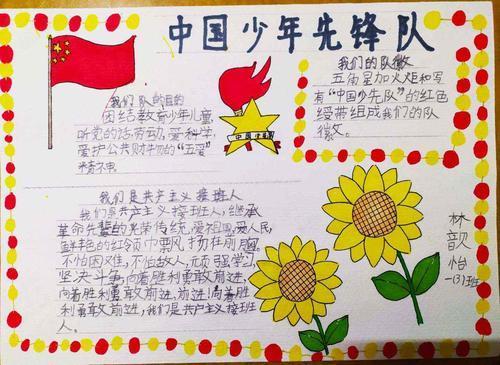 中国少年先锋队
我们队的目的
团结教育少年儿童
听党的话劳动,爱科学,
爱护公共财物的“五爱”
我们的队徽
五角星加火炬和写
有“中国少先队”的红色
绶带组成我们的队
徽。
我们是共产主义接班人
我们是共产主义接班人,继承
革命先辈的光荣传统,爱祖国,爱人民,
鲜艳的红领巾飘扬在前胸
不怕困难,不怕敌人,顽强学习,
坚决斗争,向着胜利勇敢前进,
向着胜利勇敢前进,前进!向着胜
利勇敢前进,我们是共产主义接班
人。
林
歆
怡
一(3)班